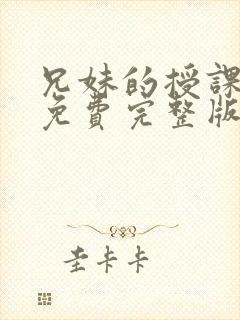 兄妹的授課
免費完整版
圭卡卡